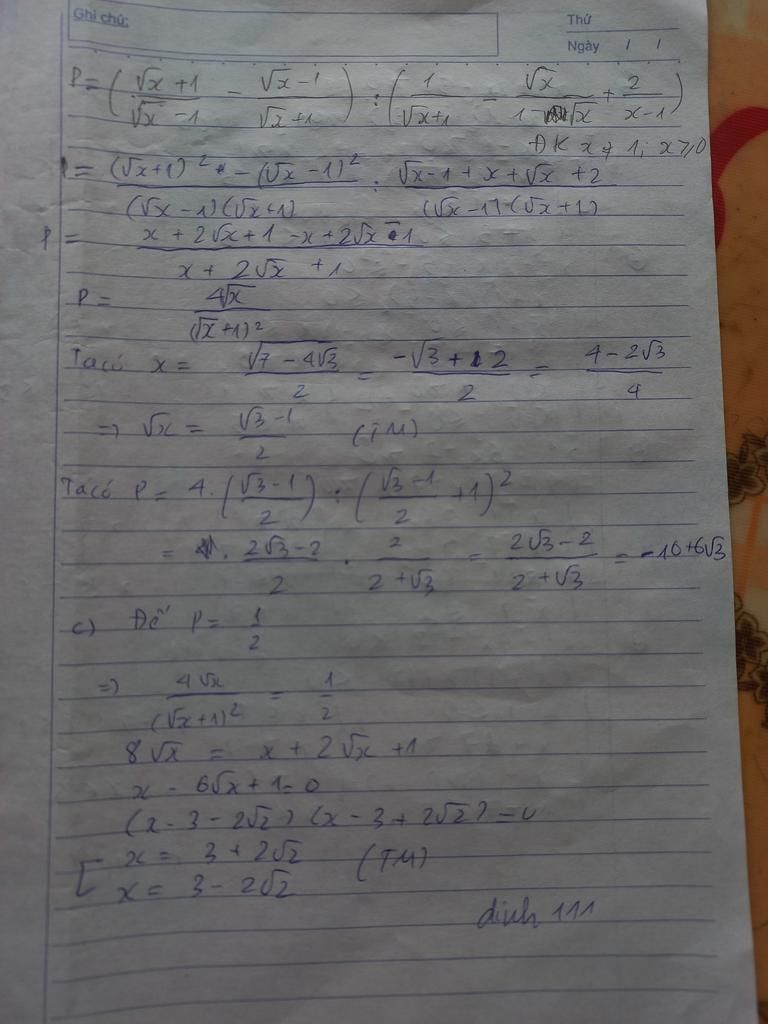 Ghi chú:
Thứ
Ngày 1 1
P = ( (√x + 1)/(√x - 1) - (√x - 1)/(√x + 1) ) : ( 1/(√x + 1) - √x/(1 - √x) + 2/(x - 1) )
ĐK x ≠ 1; x ≥ 0
P = ((√x + 1)² - (√x - 1)²)/((√x - 1)(√x + 1)) : (√x - 1 + x + √x + 2)/((√x - 1)(√x + 1))
P = (x + 2√x + 1 - x + 2√x - 1)/(x + 2√x + 1)
P = 4√x/(√x + 1)²
Ta có x = √(7 - 4√3)/2 = (-√3 + 2)/2 = (4 - 2√3)/4
=> √x = (√3 - 1)/2 (TM)
Ta có P = 4.((√3 - 1)/2) : ((√3 - 1)/2 + 1)²
= (2√3 - 2)/2 . 2/(2 + √3) = (2√3 - 2)/(2 + √3) = -10 + 6√3
c) Để P = 1/2
=> 4√x/(√x + 1)² = 1/2
8√x = x + 2√x + 1
x - 6√x + 1 = 0
(x - 3 - 2√2)(x - 3 + 2√2) = 0
[ x = 3 + 2√2 (TM)
x = 3 - 2√2
dinh 111